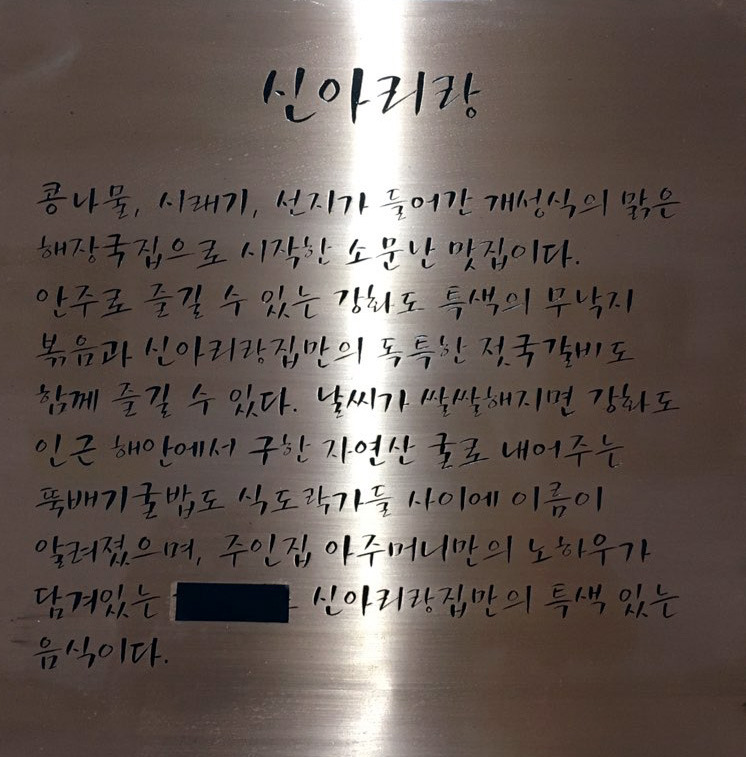 신아리랑
콩나물, 시래기, 선지가 들어간 개성식의 맑은
해장국집으로 시작한 소문난 맛집이다.
안주로 즐길 수 있는 강화도 특색의 무낙지
볶음과 신아리랑집만의 독특한 젓국갈비도
함께 즐길 수 있다. 날씨가 쌀쌀해지면 강화도
인근 해안에서 구한 자연산 굴로 내어주는
뚝배기굴밥도 식도락가들 사이에 이름이
알려졌으며, 주인집 아주머니만의 노하우가
담겨있는 신아리랑집만의 특색 있는
음식이다.